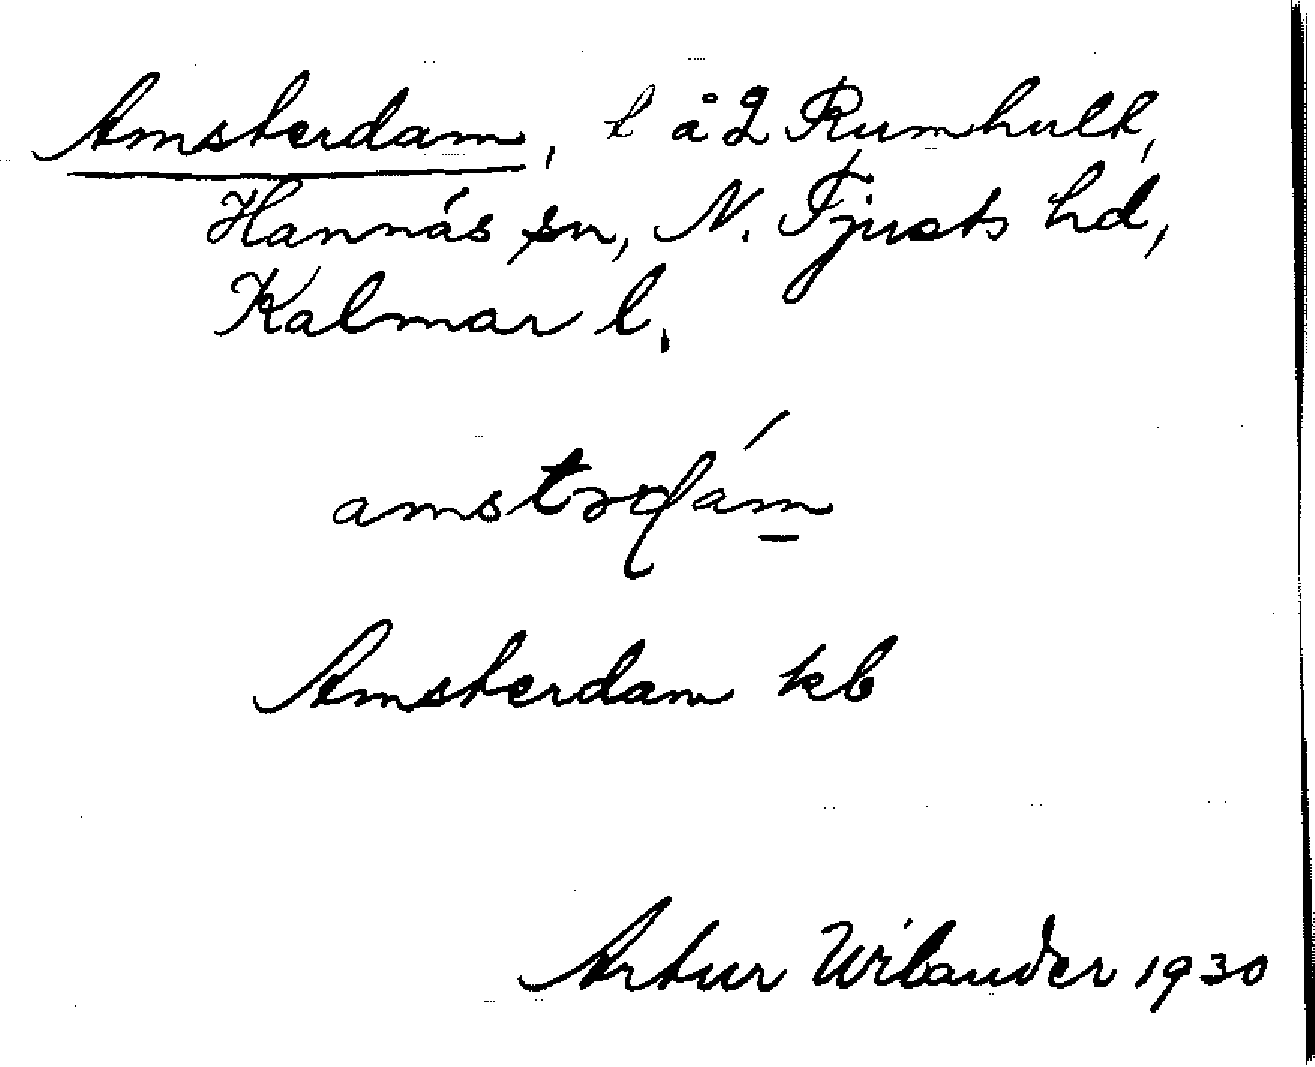 Amsterdam, l å 2 Rumhult,
Hannäs sn, N. Tjusts hd,
Kalmar l.
amstrdám
Amsterdam kb
Artur Wilander 1930